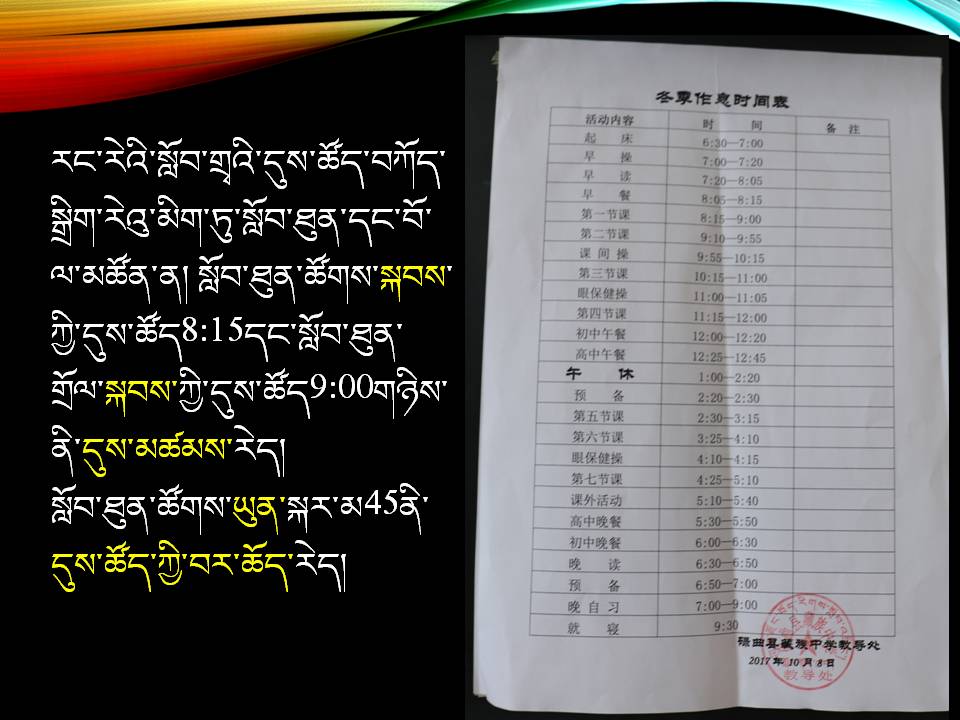 རང་རེའི་སློབ་གྲྭའི་དུས་ཚོད་བཀོད་
སྒྲིག་རེའུ་མིག་ཏུ་སློབ་ཐུན་དང་བོ་
ལ་མཚོན་ན། སློབ་ཐུན་ཚོགས་སྐབས་
ཀྱི་དུས་ཚོད8:15དང་སློབ་ཐུན་
གྲོལ་སྐབས་ཀྱི་དུས་ཚོད9:00གཉིས་
ནི་དུས་མཚམས་རེད།
སློབ་ཐུན་ཚོགས་ཡུན་སྐར་མ45ནི་
དུས་ཚོད་ཀྱི་བར་ཆོད་རེད།
冬季作息时间表
活动内容 时 间 备 注
起 床 6:30—7:00
早 操 7:00—7:20
早 读 7:20—8:05
早 餐 8:05—8:15
第一节课 8:15—9:00
第二节课 9:10—9:55
课 间 操 9:55—10:15
第三节课 10:15—11:00
眼保健操 11:00—11:05
第四节课 11:15—12:00
初中午餐 12:00—12:20
高中午餐 12:25—12:45
午 休 1:00—2:20
预 备 2:20—2:30
第五节课 2:30—3:15
第六节课 3:25—4:10
眼保健操 4:10—4:15
第七节课 4:25—5:10
课外活动 5:10—5:40
高中晚餐 5:30—5:50
初中晚餐 6:00—6:30
晚 读 6:30—6:50
预 备 6:50—7:00
晚 自 习 7:00—9:00
就 寝 9:30
碌曲县藏族中学教导处
2017年10月8日
教导处